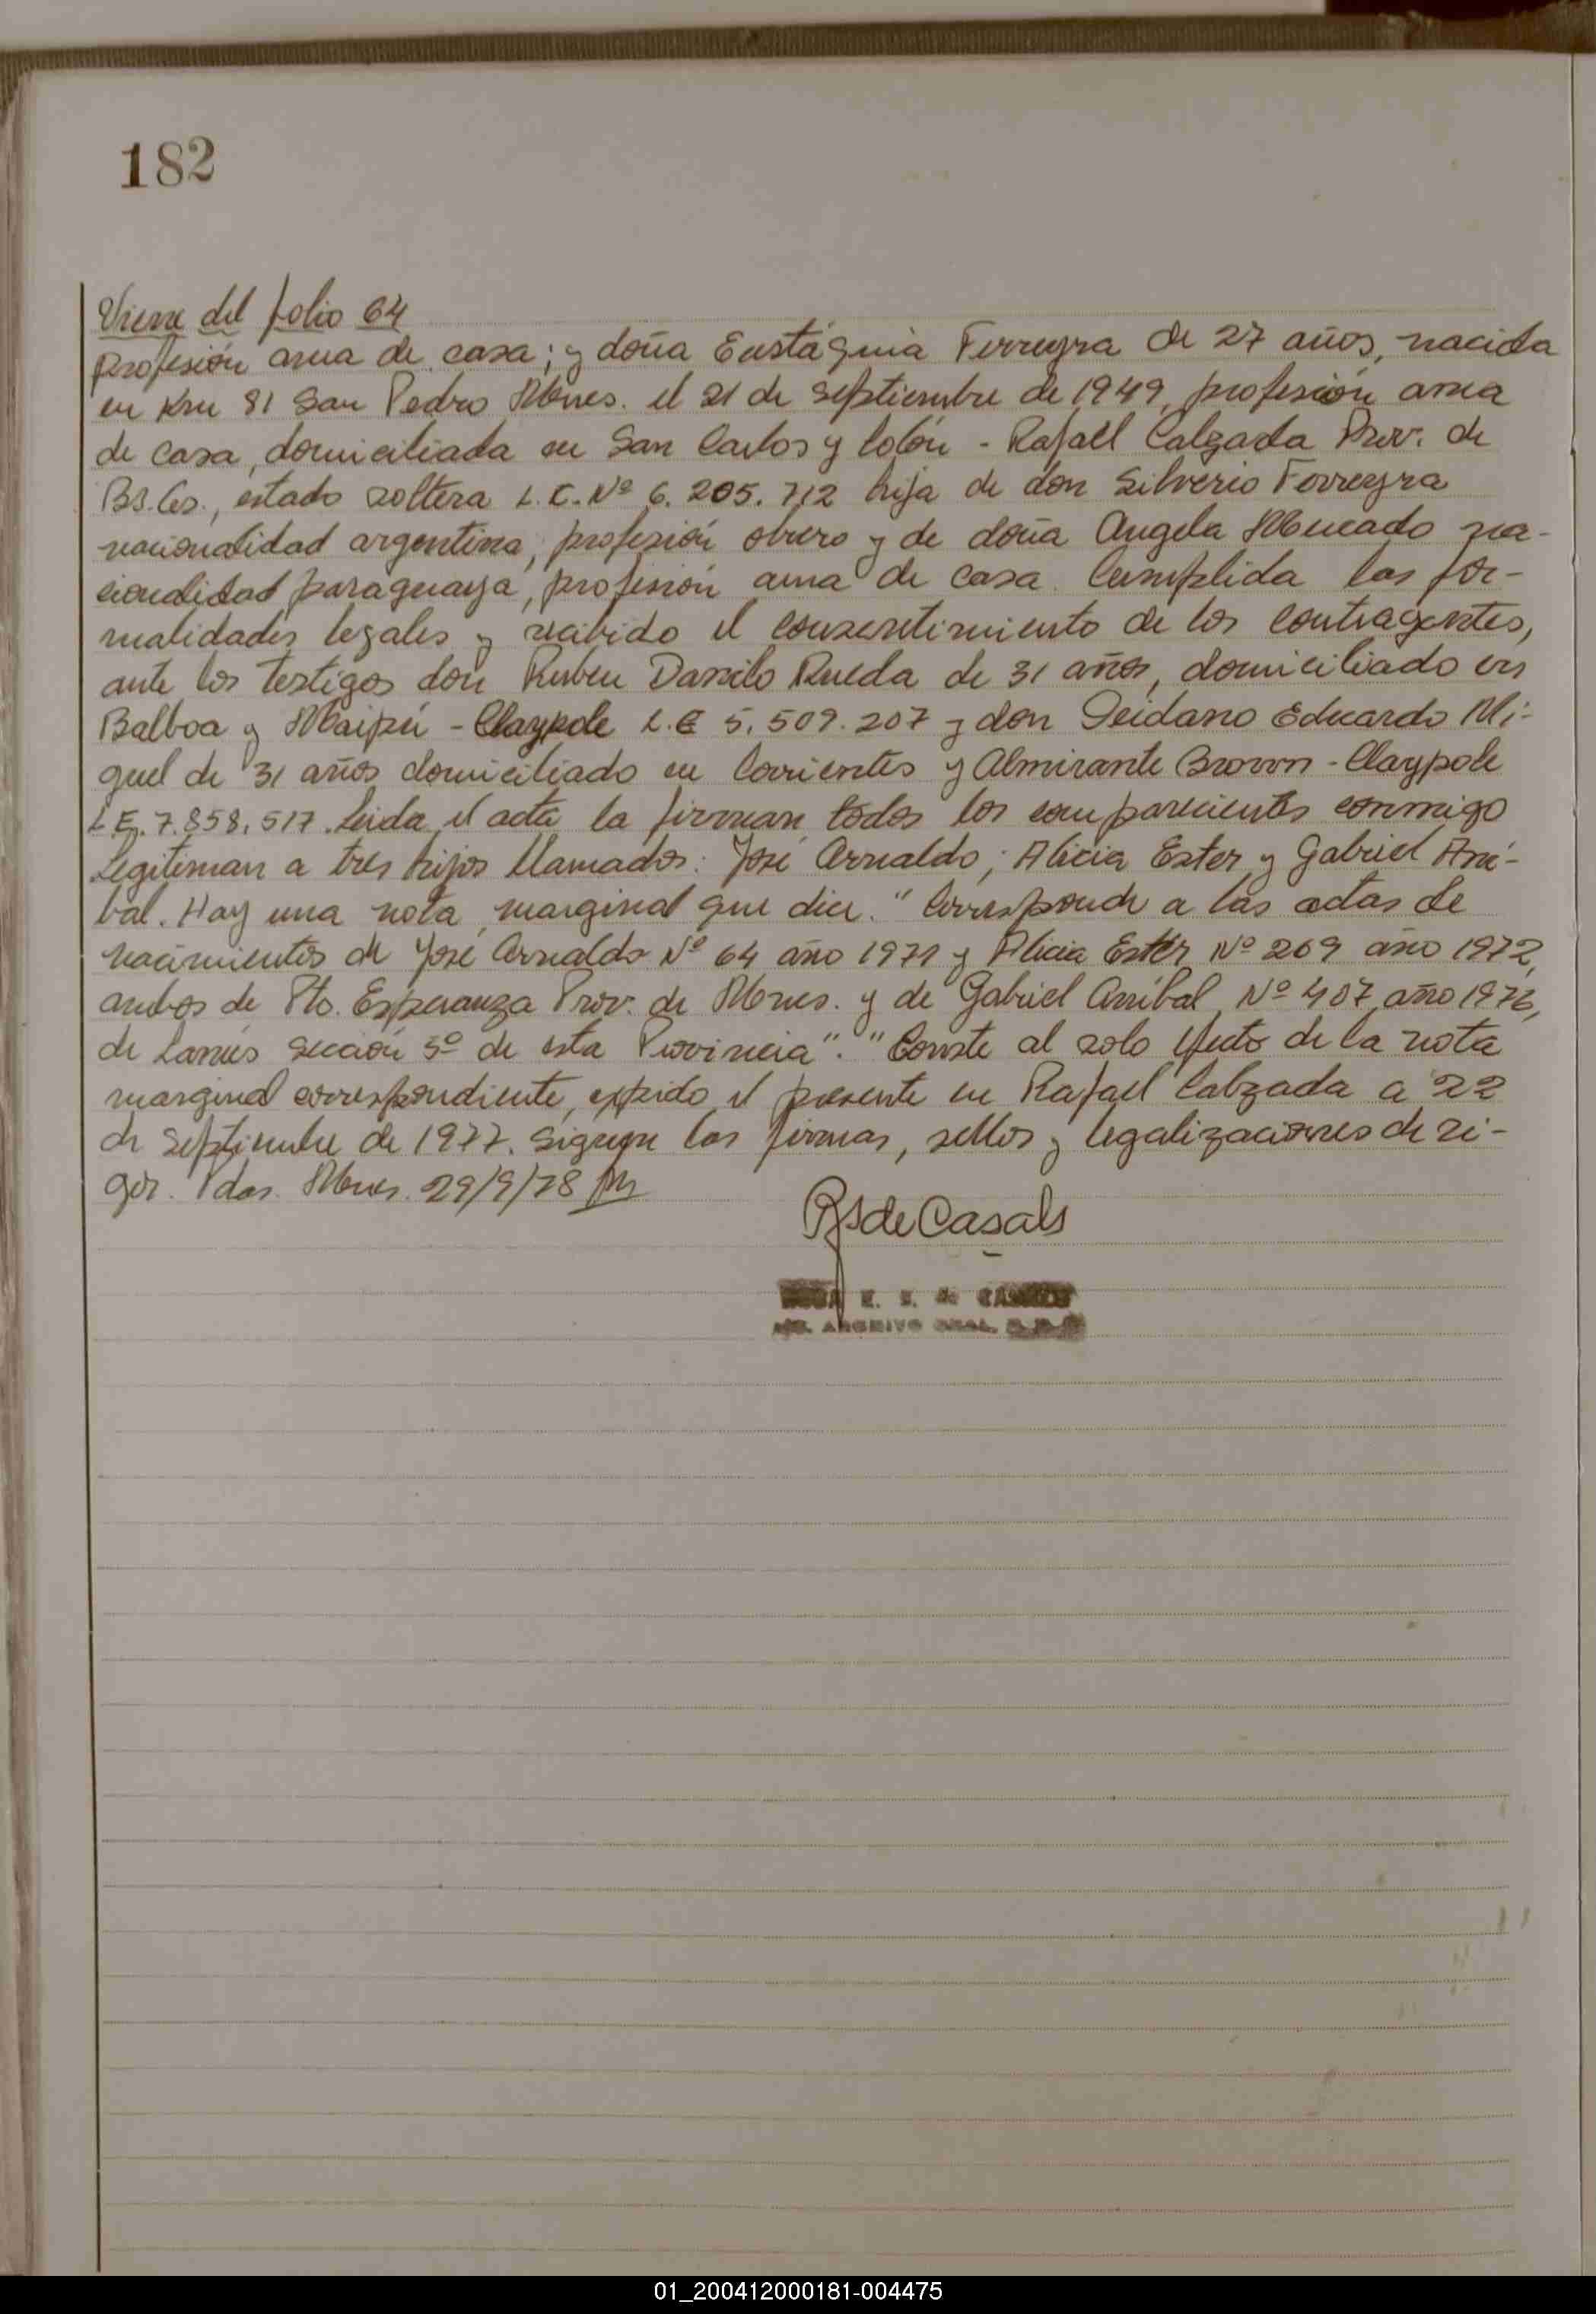 182
Viene del folio 64
profesión ama de casa; y doña Eustáquia Ferreyra de 27 años, nacida
en Km 81 San Pedro Mnes. el 21 de septiembre de 1949, profesión ama
de casa, domiciliada en San Carlos y Colón - Rafael Calzada Prov. de
Bs.As., estado soltera L.C. Nº 6.205.712 hija de don Silverio Ferreyra
nacionalidad argentina, profesión obrero y de doña Angela Mercado na-
cionalidad paraguaya, profesión ama de casa. Cumplida las for-
malidades legales y recibido el consentimiento de los contragentes,
ante los testigos don Ruben Danilo Rueda de 31 años, domiciliado en
Balboa y Maipú - Claypole L.E 5.509.207 y don Eduardo Mi-
guel de 31 años domiciliado en Corrientes y Almirante Brown - Claypole
L.E. 7.858.517. Leida el acta la firman todos los comparecientes conmigo
Legitiman a tres hijos llamados: José Arnaldo; Alicia Ester y Gabriel Aní-
bal. Hay una nota marginal que dice: "Corresponde a las actas de
nacimientos de José Arnaldo Nº 64 año 1971 y Alicia Ester Nº 269 año 1972,
ambos de Pto. Esperanza Prov. de Mnes. y de Gabriel Aníbal Nº 407 año 1976,
de Lanús Sección 5º de esta Provincia". "Conste al solo efecto de la nota
marginal correspondiente, expido el presente en Rafael Calzada a 22
de septiembre de 1977. Siguen las firmas, sellos y legalizaciones de ri-
gor. Pdas. Mnes. 29/9/78
RS de Casals
E. S. de
ARCHIVO GRAL.
01_200412000181-004475